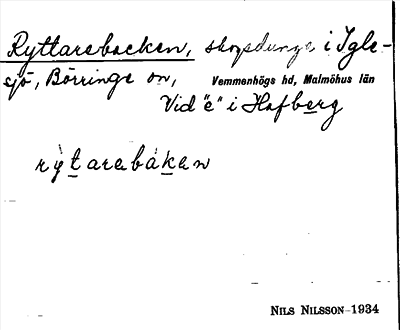 Ryttarebacken, skogsdunge i Igle-
sjö, Börringe sn, Vemmenhögs hd, Malmöhus län
Vid "e" i Hafberg
rỳtarebák̲en
NILS NILSSON 1934